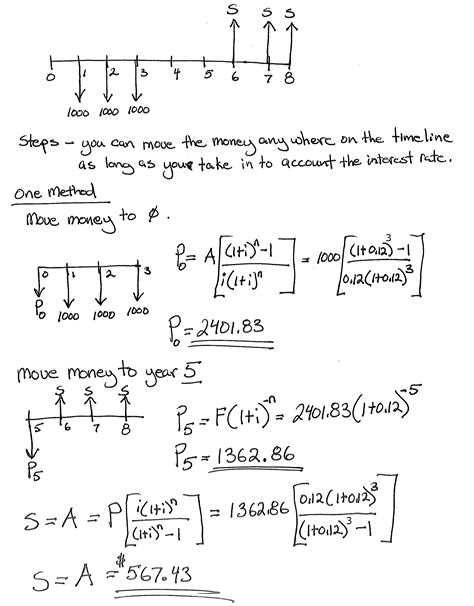 S S S
0 1 2 3 4 5 6 7 8
1000 1000 1000
Steps - you can move the money anywhere on the timeline
as long as you take in to account the interest rate.
One Method
Move money to Ø.
0 1 2 3
P₀ 1000 1000 1000
P₀ = A[((1+i)ⁿ-1)/(i(1+i)ⁿ)] = 1000[((1+0.12)³-1)/(0.12(1+0.12)³)]
P₀ = 2401.83
move money to year 5
S S S
5 6 7 8
P₅
P₅ = F(1+i)⁻ⁿ = 2401.83(1+0.12)⁻⁵
P₅ = 1362.86
S = A = P[(i(1+i)ⁿ)/((1+i)ⁿ-1)] = 1362.86[(0.12(1+0.12)³)/((1+0.12)³-1)]
S = A = $567.43